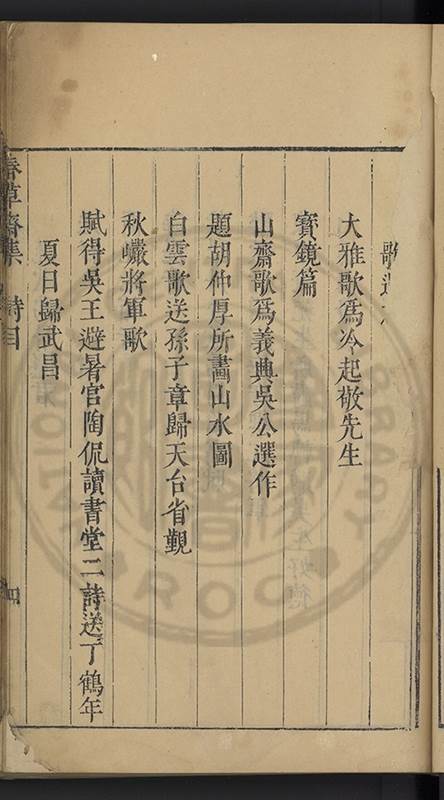 歌
大雅歌為冷起敬先生
寶鏡篇
山齋歌爲義典吳公選作
題胡仲厚所畫山水圖
白雲歌送孫子章歸天台省覲
秋巘將軍歌
賦得吳王避暑宫陶侃讀書堂二詩送丁鶴年
夏日歸武昌
春草齋集 詩目 四